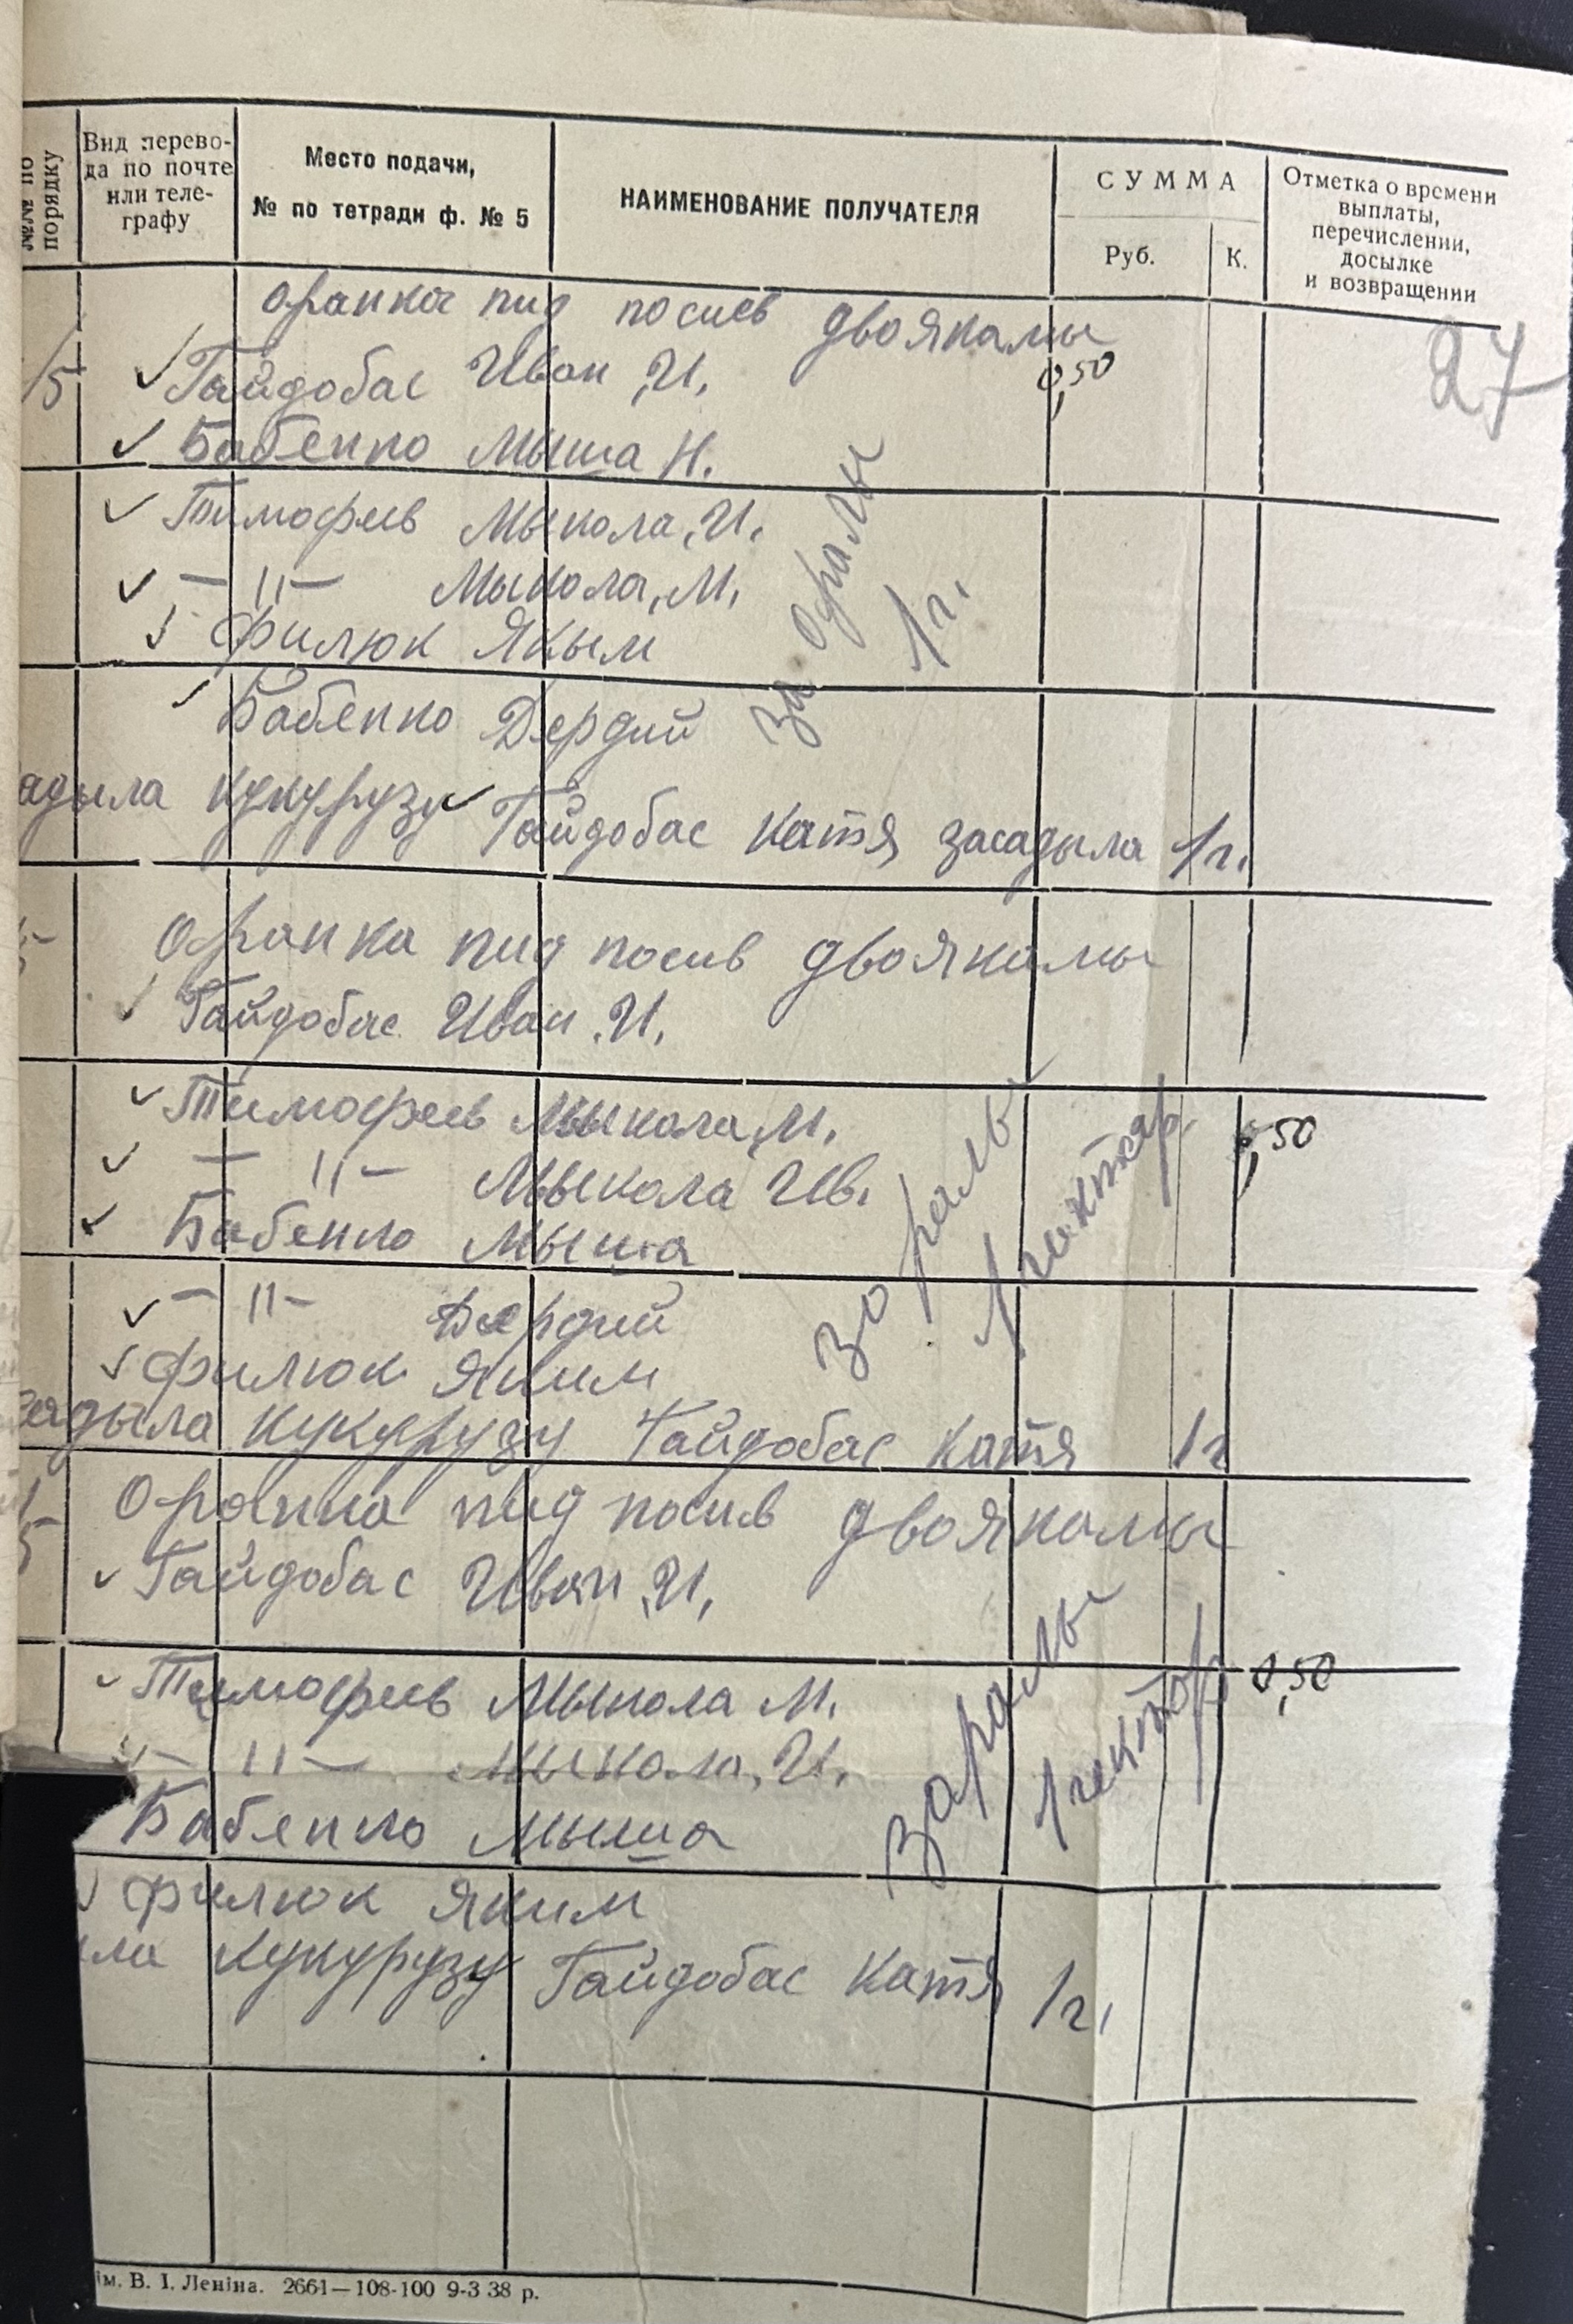 №№ по порядку
Вид перево-
да по почте
или теле-
графу
Место подачи,
№ по тетради ф. № 5
НАИМЕНОВАНИЕ ПОЛУЧАТЕЛЯ
СУММА
Руб. К.
Отметка о времени
выплаты,
перечислении,
досылке
и возвращении
27
Оранка пид посиев двояками
/5 ✓ Гайдобас Иван И. 0,50
✓ Бабенко Мыша Н.
✓ Тимофеев Мыкола, И.
✓ — 〃 — Мыкола, М.
✓ Филюк Якым
✓ Бабенко Дердий
за оралы
1 г.
адыла кукурузу ✓ Гайдобас Катя засадыла 1 г.
Оранка пид посив двояками
✓ Гайдобас Иван И.
✓ Тимофеев Мыкола, М. 0,50
✓ — 〃 — Мыкола Ив.
✓ Бабенко Мыша
✓ — 〃 — Дердий
✓ Филюк Яким
зоралы
1 гектар
садыла кукурузу Гайдобас Катя 1 г
5 Оранка пид посив двояками
✓ Гайдобас Иван И.
✓ Тимофеев Мыкола М. 0,50
— 〃 — Мыкола, И.
Бабенко Мыша
✓ Филюк Яким
заралы
1 гектор
ла кукурузу Гайдобас Катя 1 г.
ім. В. І. Леніна. 2661—108-100 9-3 38 р.